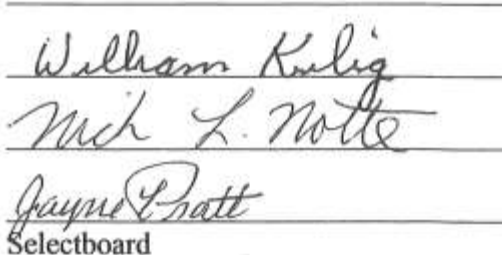 William Kulig
Nick L. Notte
Jayne Pratt
Selectboard